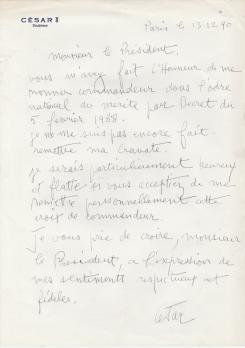 CÉSAR
Paris le 13.12.90
Monsieur le Président,
vous m'avez fait l'Honneur de me
nommer commandeur dans l'ordre
national du mérite par Decret du
5 février 1988.
je ne me suis pas encore fait
remettre ma Cravate.
je serais particulièrement heureux
et flatté si vous acceptiez de me
remettre personnellement cette
croix de commandeur.
Je vous prie de croire, monsieur
le Président, a l'expression de
mes sentiments respectueux et
fidèles.
César